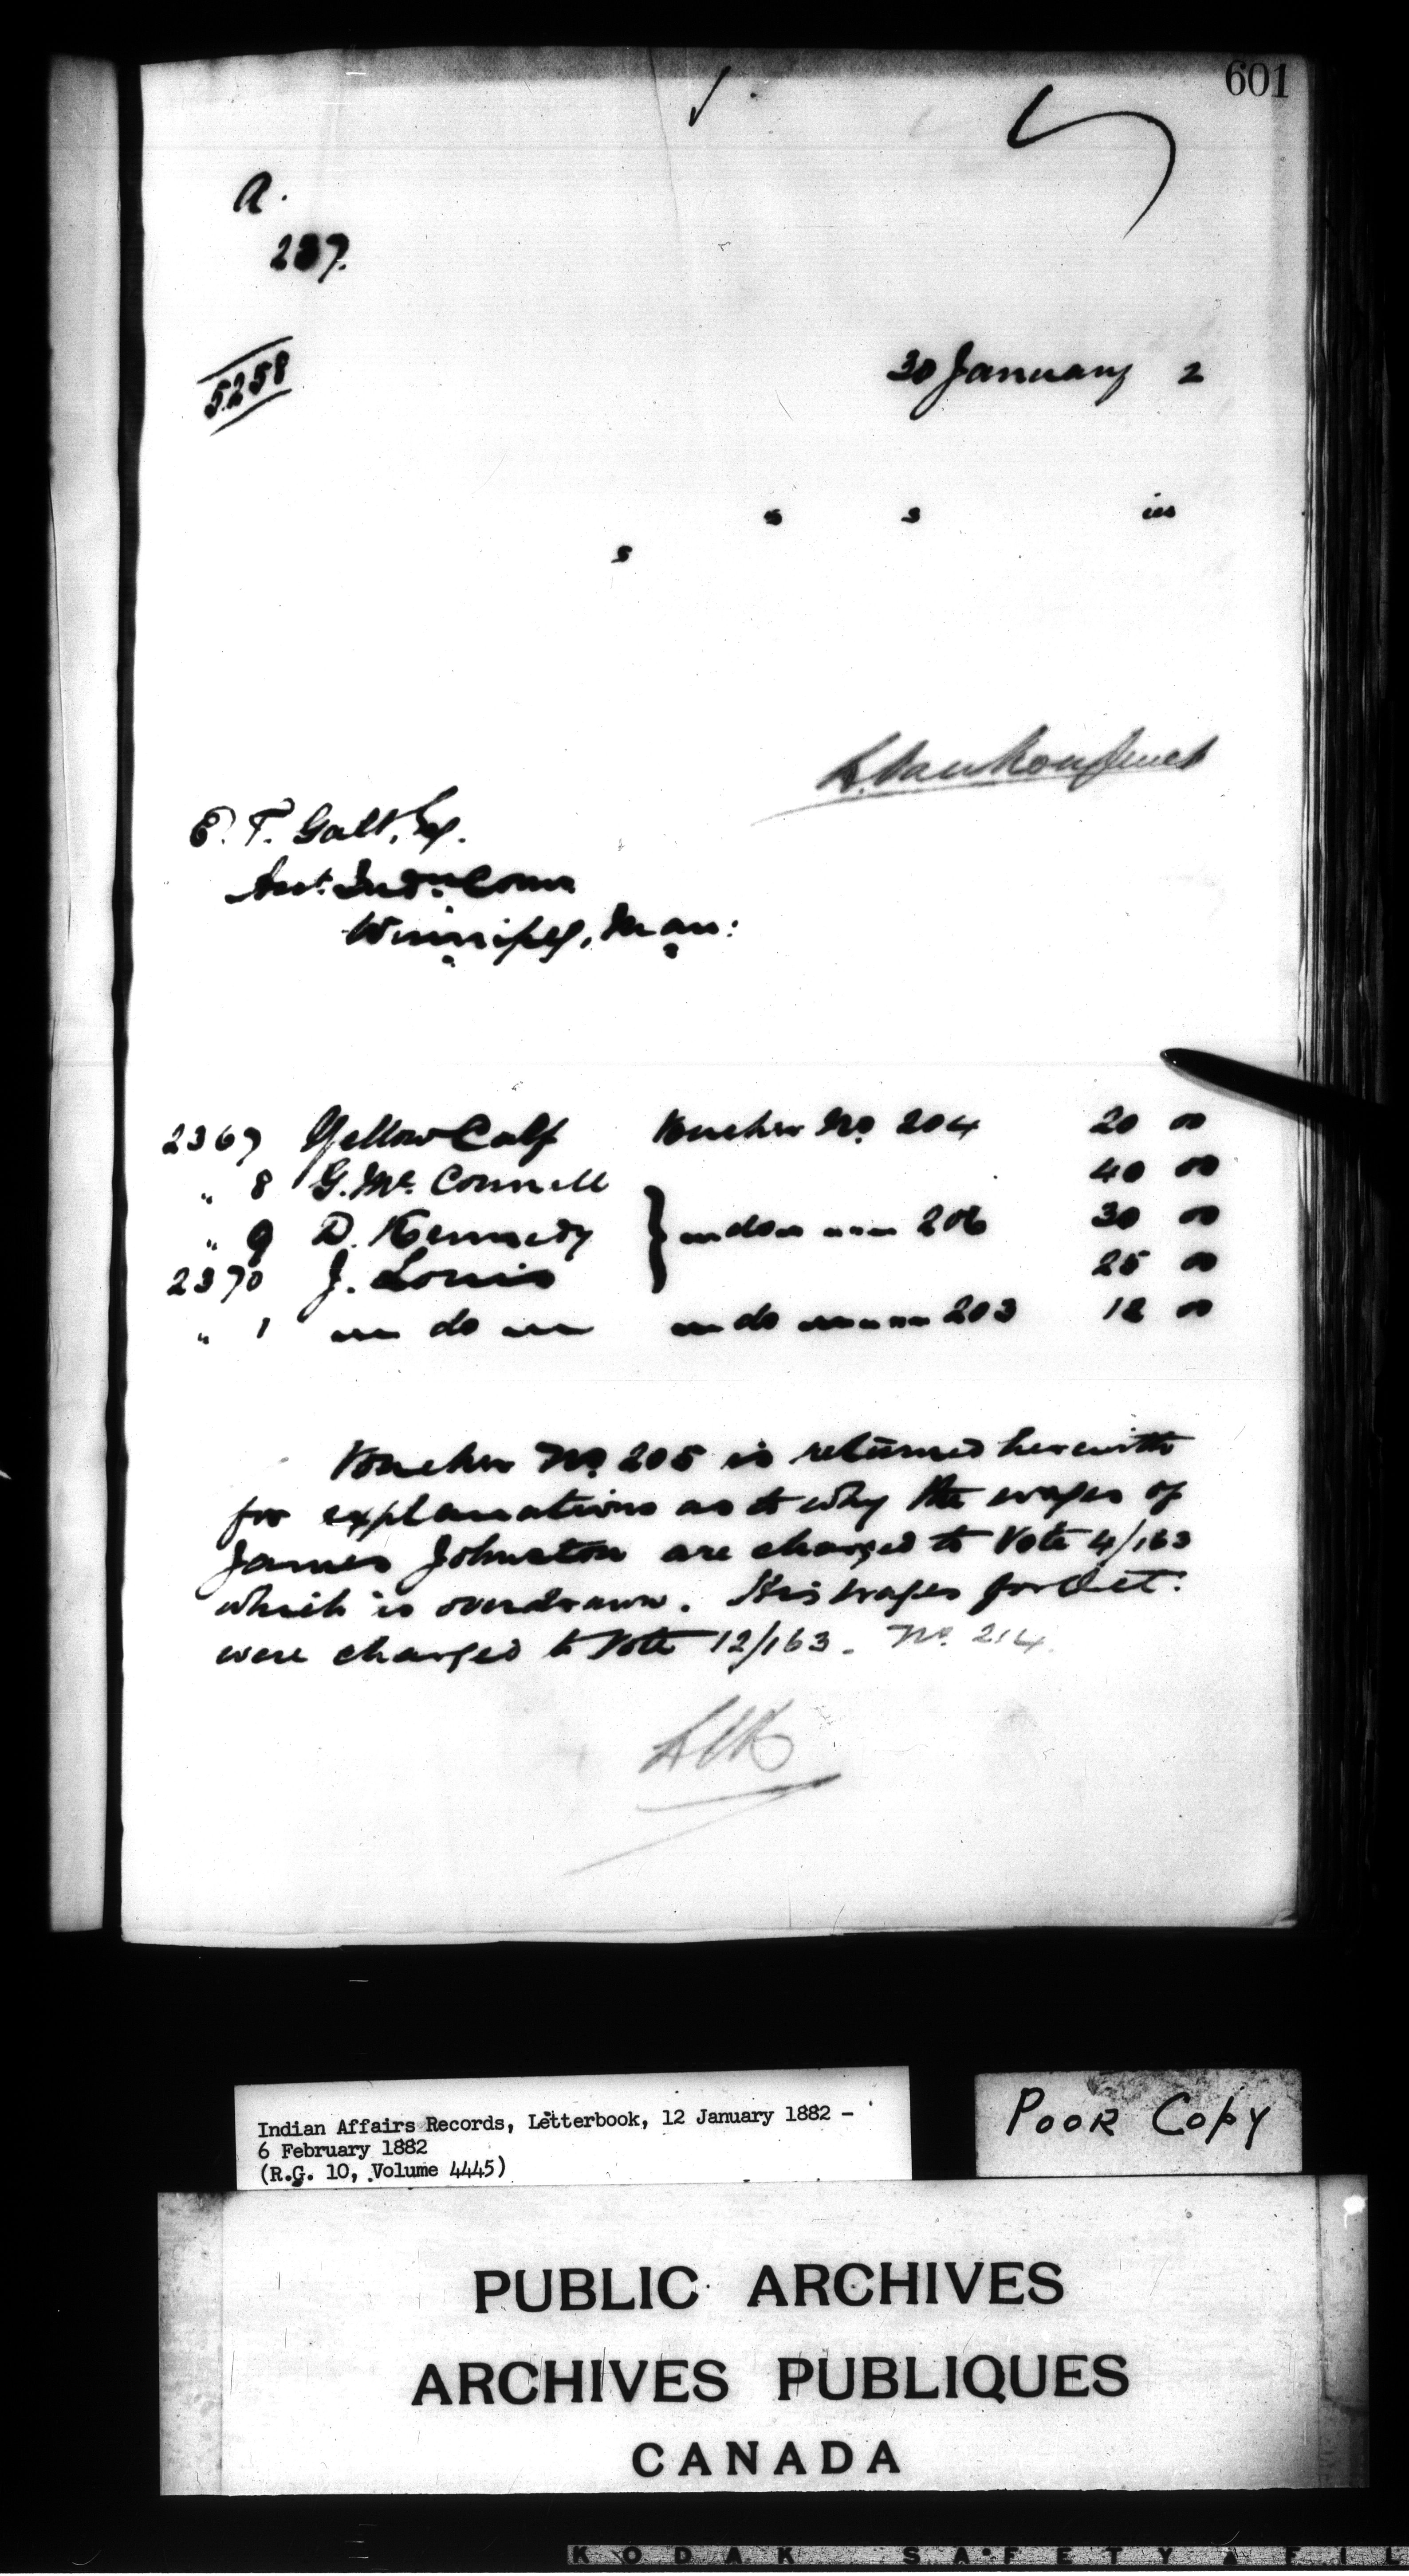 601
A.
237.
5258
30 January 2
s s ies
s
L. Vankoughnet
E. T. Galt, Esq.
Asst. Indn. Comr
Winnipeg, Man:
2367 Yellow Calf Voucher No. 204 20 00
" 8 G. Mc. Connell 40 00
" 9 D. Kennedy } " do " " 206 30 00
2370 J. Louis 25 00
" 1 " do " " do " " 203 12 00
Voucher No. 205 is returned herewith
for explanations as to why the wages of
James Johnston are charged to Vote 4/163
which is overdrawn. His wages for Oct.
were charged to Vote 12/163. No. 214.
LVK
Indian Affairs Records, Letterbook, 12 January 1882 -
6 February 1882
(R.G. 10, Volume 4445)
POOR COPY
PUBLIC ARCHIVES
ARCHIVES PUBLIQUES
CANADA
KODAK SAFETY FIL